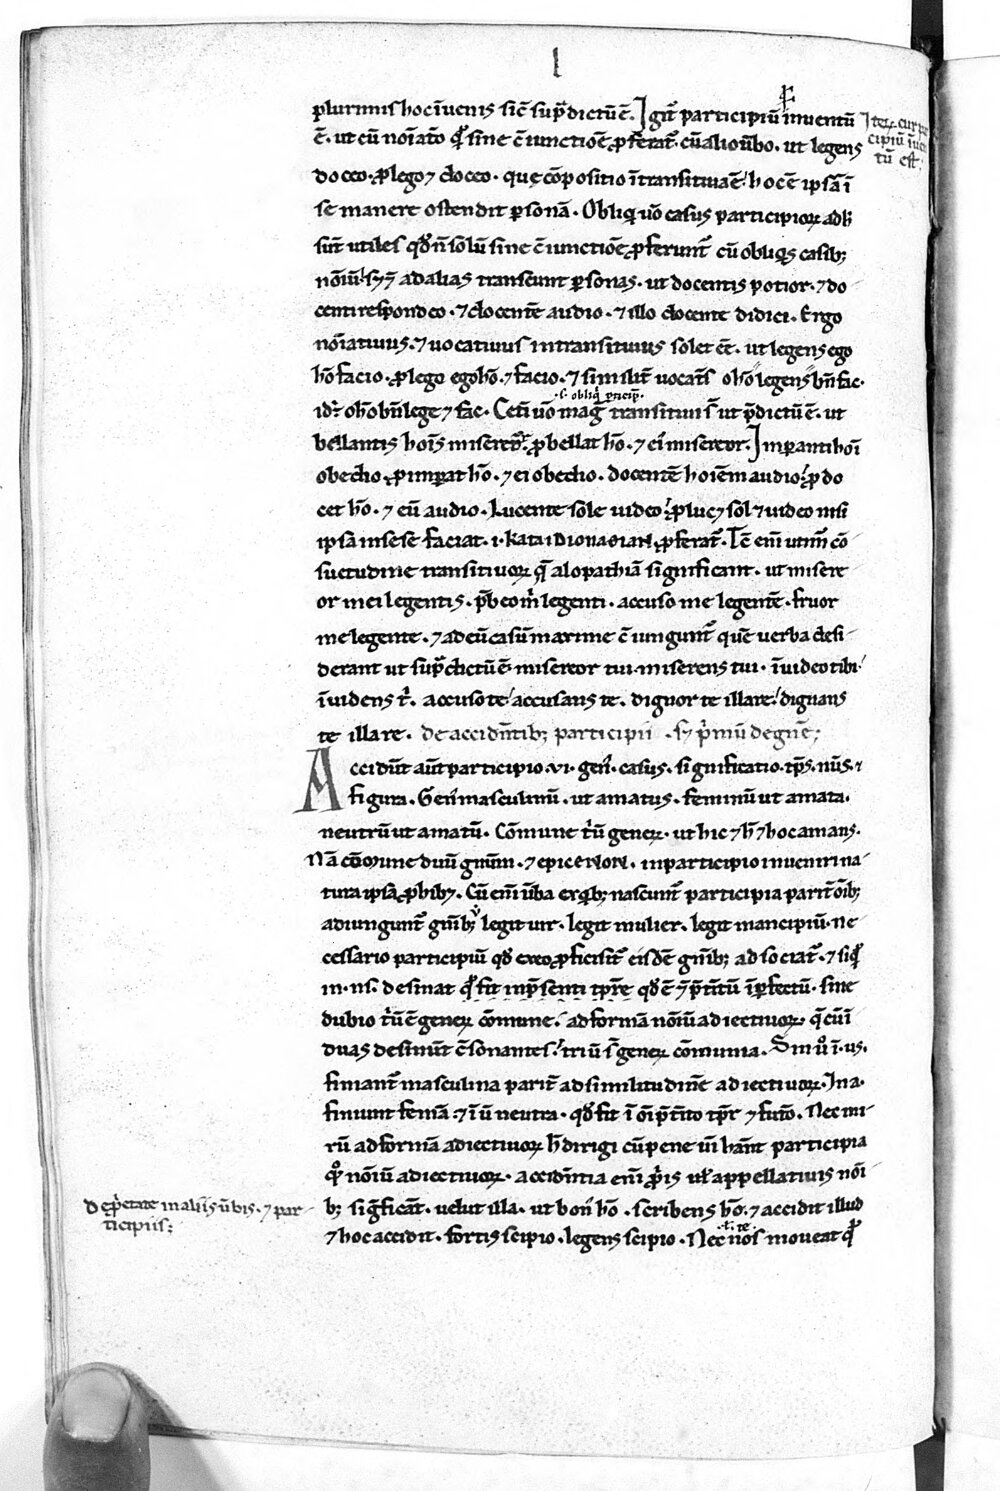 l
plurimis hoc īuenis sic̄ sup̄dictū ē. Igit̄ participiū inuentū
ē. ut cū nōiatō qđ sine c̄iunctiōe ꝓferat̄. cū alio ūbo. ut legens
doceo. ꝓ lego ⁊ doceo. quę cōpositio ītransitiua ē. hoc ē ipsā ī
se manere ostendit ꝑsonā. Obliqui uō casus participioꝝ adh
sunt utiles qđ n̄ solū sine c̄iunctiōe ꝓferunt̄ cū obliquis casib;
nōiū. sꝫ ⁊ ad alias transeunt ꝑsonas. ut docentis potior. ⁊ do
centi respondeo. ⁊ docentē audio. ⁊ illo docente didici. Ergo
nōiatiuus. ⁊ uocatiuus intransitiuus solet eē. ut legens ego
hō facio. ꝓ lego ego hō. ⁊ facio. ⁊ similit̄ uocat̄s o hō legens bn̄ fac.
id; o hō bn̄ lege ⁊ fac. Cet̄i uō maḡ transitiui s̄ ut p̄dictū ē. ut
.s. obliqi p̄ticip̄.
bellantis hoīs misereor. ꝓ bellat hō. ⁊ ei misereor. Imꝑanti hoī
obedio ꝓ imꝑat hō. ⁊ ei obedio. docentē hoīem audio. ꝓ do
cet hō. ⁊ eū audio. Lucente sole uideo. ꝓ lucꝫ sol ⁊ uideo nisi
ipsā in sese faciat. i. kata idionasian ꝓferat̄. Tc̄ eni utunt̄ cō
suetudine transitiuoꝝ q̄ alopathiā significant. ut misere
or mei legentis. p̄beo m̄ legenti. accuso me legentē. fruor
me legente. ⁊ ad eū casū maxime c̄iungunt̄ quē uerba desi
derant ut sup̄dictū ē. misereor tui. miserens tui. īuideo tibi
īuidens t̄. accuso te. accusans te. dignor te illare. dignans
te illare. de accidn̄tib; participii. sꝫ p̄mū de gn̄e;
Accidūt aūt participio .vi. gen̄. casus. significatio. tp̄s. nūs. ⁊
figura. Gen̄ masculinū. ut amatus. feminū ut amata.
neutrū ut amatū. Cōmune t̄ū geneꝝ. ut hic ⁊ h̄ ⁊ hoc amans.
Nā cōmune duū gn̄um. ⁊ epicenon. in participio inueniri na
tura ipsā ꝓhibꝫ. Cū eni ūba ex qb; nascunt̄ participia parit̄ oīb;
adiungunt̄ gn̄ib; legit uir. legit mulier. legit mancipiū. ne
cessario participiū qđ ex eo ꝓficisit̄ eisdē gn̄ib; ad sociat̄. ⁊ siqđ
in .ns. desinat qđ fit in p̄senti tp̄re qđ ē ⁊ p̄t̄itū īꝑfectū. sine
dubio t̄ū ē geneꝝ cōmune. ad formā nōiū adiectiuoꝝ. q̄ cū ī
duas desinūt c̄sonantes. triū s̄ geneꝝ cōmunia. Sin uō ī .us.
finiant̄ masculina parit̄ ad similitudinē adiectiuoꝝ. In a.
finiunt femīa. ⁊ ī ū neutra. qđ fit ī oī p̄t̄ito tp̄r ⁊ fut̄o. Nec mi
rū ad formā adiectiuoꝝ h̄ dirigi cū pene uīm habeant participia
qđ nōiū adiectiuoꝝ. accidentia eni ꝓpriis uel appellatiuis nōi
b; sig̅ficāt. uelut illa. ut bon' hō. scribens hō. ⁊ accidit illud
⁊ hoc accidit. fortis scipio. legens scipio. Nec nos moueat qđ
.l. te
Iteꝝ cur par
ticipiū īuē
tū est;
de ꝓprietate in aliis ūbis. ⁊ par
ticipiis;